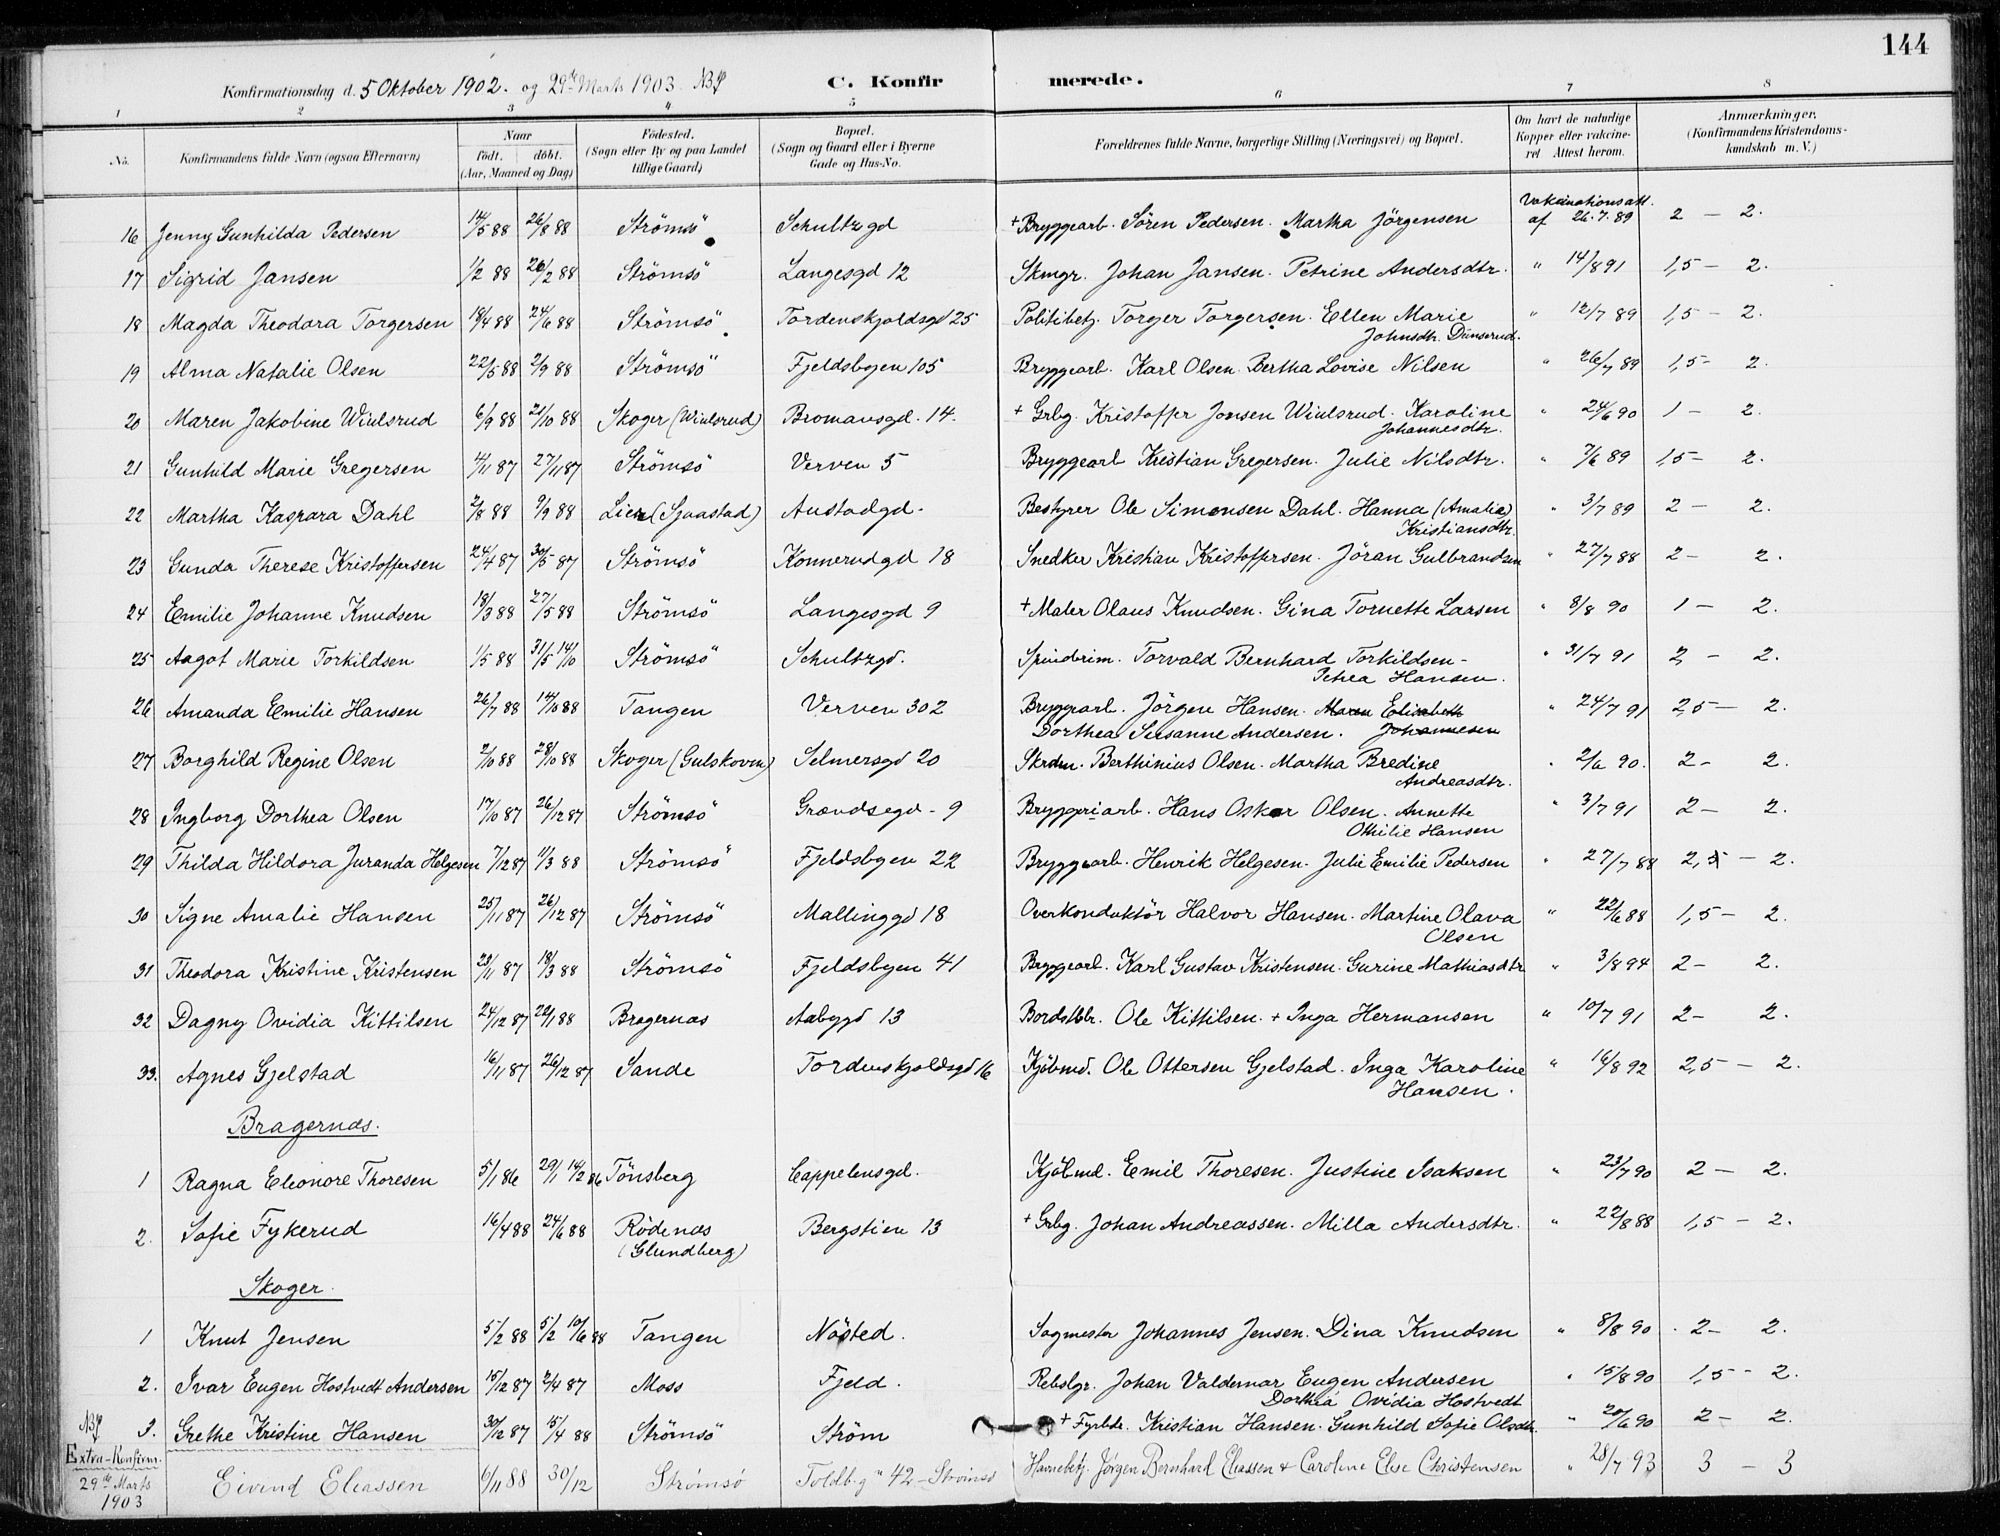 144
Konfirmationsdag d. 5 Oktober 1902. og 29de Marts 1903 NB
C. Konfirmerede.
1 2 3 4 5 6 7 8
No. Konfirmandens fulde Navn (ogsaa Efternavn) Naar født. døbt. (Aar, Maaned og Dag) Fødested. (Sogn eller By og paa Landet tillige Gaard) Bopæl. (Sogn og Gaard eller i Byerne Gade og Hus-No. Forældrenes fulde Navne, borgerlige Stilling (Næringsvei) og Bopæl. Om havt de naturlige Kopper eller vakcineret Attest herom. Anmærkninger. (Konfirmandens Kristendomskundskab m. V.)
16 Jenny Gunhilda Pedersen 14/5 88 26/8 88 Strömsö Schultzgd + Bryggearb. Sören Pedersen. Martha Jörgensen Vakcinationsatt. af 26.7.89 2 – 2.
17 Sigrid Jansen 1/2 88 26/2 88 Strömsö Langesgd 12 Skmgr. Johan Jansen. Petrine Andersdtr. " 14/8 91 1,5 – 2.
18 Magda Theodora Torgersen 18/4 88 24/6 88 Strömsö Tordenskjoldsgd 25 Politibetj. Torger Torgersen. Ellen Marie " 12/7 89 1,5 – 2.
Johnsdtr. Dunserud.
19 Alma Natalie Olsen 22/5 88 2/9 88 Strömsö Fjeldsbyen 105 Bryggearb. Karl Olsen. Bertha Lovise Nilsen " 26/7 89 1,5 – 2.
20 Maren Jakobine Wiulsrud 6/9 88 21/10 88 Skoger (Wiulsrud) Bromansgd. 14. + Grbg. Kristoffer Jonsen Wiulsrud. Karoline " 24/6 90 1 – 2.
Johannesdtr.
21 Gunhild Marie Gregersen 4/11 87 27/11 87 Strömsö Verven 5 Bryggearb Kristian Gregersen. Julie Nilsdtr. " 7/6 89 1,5 – 2.
22 Martha Kaspara Dahl 2/8 88 9/9 88 Lier (Sjaastad) Austadgd. Bestyrer Ole Simensen Dahl. Hanna (Amalie) " 3/7 89 2 – 2.
Kristiansdtr.
23 Gunda Therese Kristoffersen 24/4 87 30/5 87 Strömsö Konnerudgd 18 Snedker Kristian Kristoffersen. Jöran Gulbrandsen " 27/7 88 2 – 2.
24 Emilie Johanne Knudsen 18/3 88 27/5 88 Strömsö Langesgd 9 + Maler Olaus Knudsen. Gina Tornette Larsen " 8/8 90 1 – 2.
25 Aagot Marie Torkildsen 1/5 88 31/5 14/10 Strömsö Schultzgd. Spinderim. Torvald Bernhard Torkildsen – " 31/7 91 2 – 2.
Petrea Hansen.
26 Amanda Emilie Hansen 26/7 88 14/10 88 Tangen Verven 302 Bryggearb. Jörgen Hansen. Maren Elisabeth " 24/7 91 2,5 – 2.
Dorthea Susanne Andersen. Johannesen
27 Borghild Regine Olsen 2/10 88 28/10 88 Skoger (Gulskoven) Selmersgd 20 Skrdm. Berthinius Olsen. Martha Bredine " 2/6 90. 2 – 2.
Andreasdtr.
28 Ingborg Dorthea Olsen 17/10 87 26/12 87 Strömsö Grændsegd – 9 Bryggeriarb. Hans Oskar Olsen. Annette " 3/7 91 2 – 2.
Othilie Hansen
29 Thilda Hildora Juranda Helgesen 7/12 87 11/3 88 Strömsö Fjeldsbyen 22 Bryggearb. Henrik Helgesen. Julie Emilie Pedersen " 27/7 88 2,5 – 2.
30 Signe Amalie Hansen 25/11 87 26/12 87 Strömsö Mallinggd 18 Overkonduktör Halvor Hansen. Martine Olava " 22/6 88 1,5 – 2.
Olsen
31 Theodora Kristine Kristensen 23/11 87 18/3 88 Strömsö Fjeldsbyen 41 Bryggearb. Karl Gustav Kristensen. Gurine Mathiasdtr " 3/8 94 2 – 2.
32 Dagny Ovidia Kittilsen 24/12 87 22/1 88 Bragernæs Aabygd 13 Bordstblr. Ole Kittilsen. + Inga Hermansen " 10/7 91 2 – 2.
33. Agnes Gjelstad 16/11 87 26/12 87 Sande Tordenskjoldsgd 16 Kjöbmd. Ole Ottersen Gjelstad. Inga Karoline " 16/8 92 2,5 – 2.
Hansen.
Bragernæs.
1 Ragna Eleonore Thoresen 5/1 86 29/1 14/2 86 Tönsberg Cappelensgd. Kjöbmd. Emil Thoresen. Justine Isaksen " 23/7 90 2 – 2.
2. Sofie Fykerud 16/4 88 24/6 88 Rödenæs Bergstien 13 + Grbg. Johan Andreassen. Milla Andersdtr. " 22/8 88 1,5 – 2.
(Glundberg)
Skoger.
1 Knut Jensen 5/2 88 5/2 10/6 88 Tangen Nösted. Sagmester Johannes Jensen. Dina Knudsen " 8/8 90 2 – 2.
2. Ivar Eugen Hostvedt Andersen 15/12 87 2/4 87 Moss Fjeld. Rebslgr. Johan Valdemar Eugen Andersen " 15/8 90 1,5 – 2.
Dorthea Ovidia Hostvedt
NB 3. Grethe Kristine Hansen 30/12 87 15/4 88 Strömsö Ström + Fyrbdr. Kristian Hansen. Gunhild Sofie Olsdtr. " 20/6 90 2 – 2.
Extra-Konfirm. 29de Marts 1903 Eivind Eliassen 6/11 88 30/12 Strømsö Toldb.g. 42 – Strömsö Havnebetj. Jørgen Bernhard Eliassen & Caroline Elise Christensen " 28/7 93 3 – 3